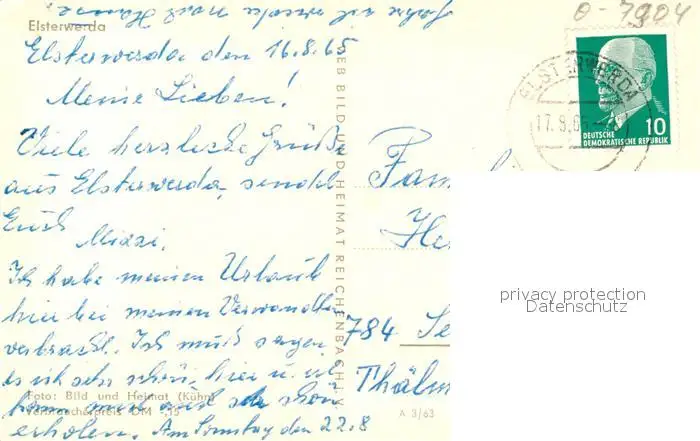 fahre ich wieder nach Hause
O-7904
Elsterwerda
Elsterwerda den 16.8.65
Meine Lieben!
Viele herzliche Grüße
aus Elsterwerda, sendet
Euch
Mizzi.
Ich habe meinen Urlaub
hier bei meinen Verwandten
verbracht. Ich muß sagen,
es ist sehr schön hier u. ich
kann mich auch sehr schön
erholen. Am Sonntag den 22.8
Foto: Bild und Heimat (Kühn)
Verbraucherpreis DM -,15
VEB BILD UND HEIMAT REICHENBACH I. V.
A 3/63
ELSTERWERDA
17.8.65
10
DEUTSCHE
DEMOKRATISCHE REPUBLIK
Fam
He
784 Se
Thälm
privacy protection
Datenschutz